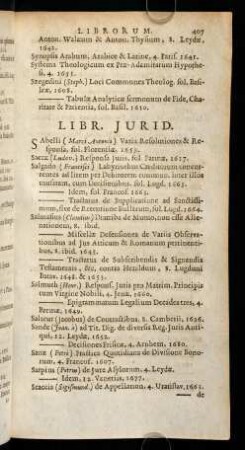 LIBRORUM. 407
Anton. Walæum & Anton. Thysium, 8. Leydæ
1642.
Synopsis Arabum, Arabice & Latine, 4. Paris. 1641.
Systema Theologicum ex Præ-Adamitarum Hypothe-
si, 4. 1655.
Szegedini (Steph.) Loci Communes Theolog. fol. Basi-
leæ, 1608.
——— Tabulæ Analyticæ sermonum de Fide, Cha-
ritate & Patientia, fol. Basil. 1610.
LIBR. JURID.
Sabelli (Marci Antonii) Variæ Resolutiones &
Responsa, fol. Florentiæ. 1657.
Sacca (Ludov.) Responsa Juris, fol. Parmæ. 1617.
Salgado (Francisci) Labyrinthus Creditorum concur-
rentium ad litem per Debitorem communem inter illos
causatam, cum Institutionibus. fol. Lugd. 1665.
——— Idem, fol. Francof. 1663.
——— Tractatus de Supplicatione ad Sanctissi-
mum, sive de Retentione Bullarum, fol. Lugd. 1664.
Salmasius (Claudius) Diatribe de Mutuo, non esse Alie-
nationem, 8. ibid.
——— Miscellæ Defensiones de Variis Observa-
tionibus ad Jus Atticum & Romanum pertinenti-
bus, 8. ibid. 1645.
——— Tractatus de Subscribendis & Signandis
Testamentis, &c. contra Heraldum, 8. Lugduni
Batav. 1648. & 1653.
Salmuth (Henr.) Respons. Juris pro Matrim. Principis
cum Virgine Nobili, 4. Jenæ. 1660.
——— Epigrammatum Legalium Decades tres, 4.
Parmæ. 1649.
Salucar (Jacobus) de Contractibus. 8. Camberii, 1626.
Sande (Joan. à) ad Tit. Dig. de diversis Reg. Juris Anti-
qui, 12. Leydæ, 1652.
——— Decisiones Frisicæ, 4. Arnhem. 1680.
Santz (Petri) Practica Quotidiana de Divisione Bono-
rum, 4. Francof. 1607.
Sarpina (Petri) de Jure Asylorum, 4. Leydæ.
——— Idem, 12. Venetiis, 1677.
Scaccia (Sigismund.) de Appellationib. 4. Uratislav. 1661.
de